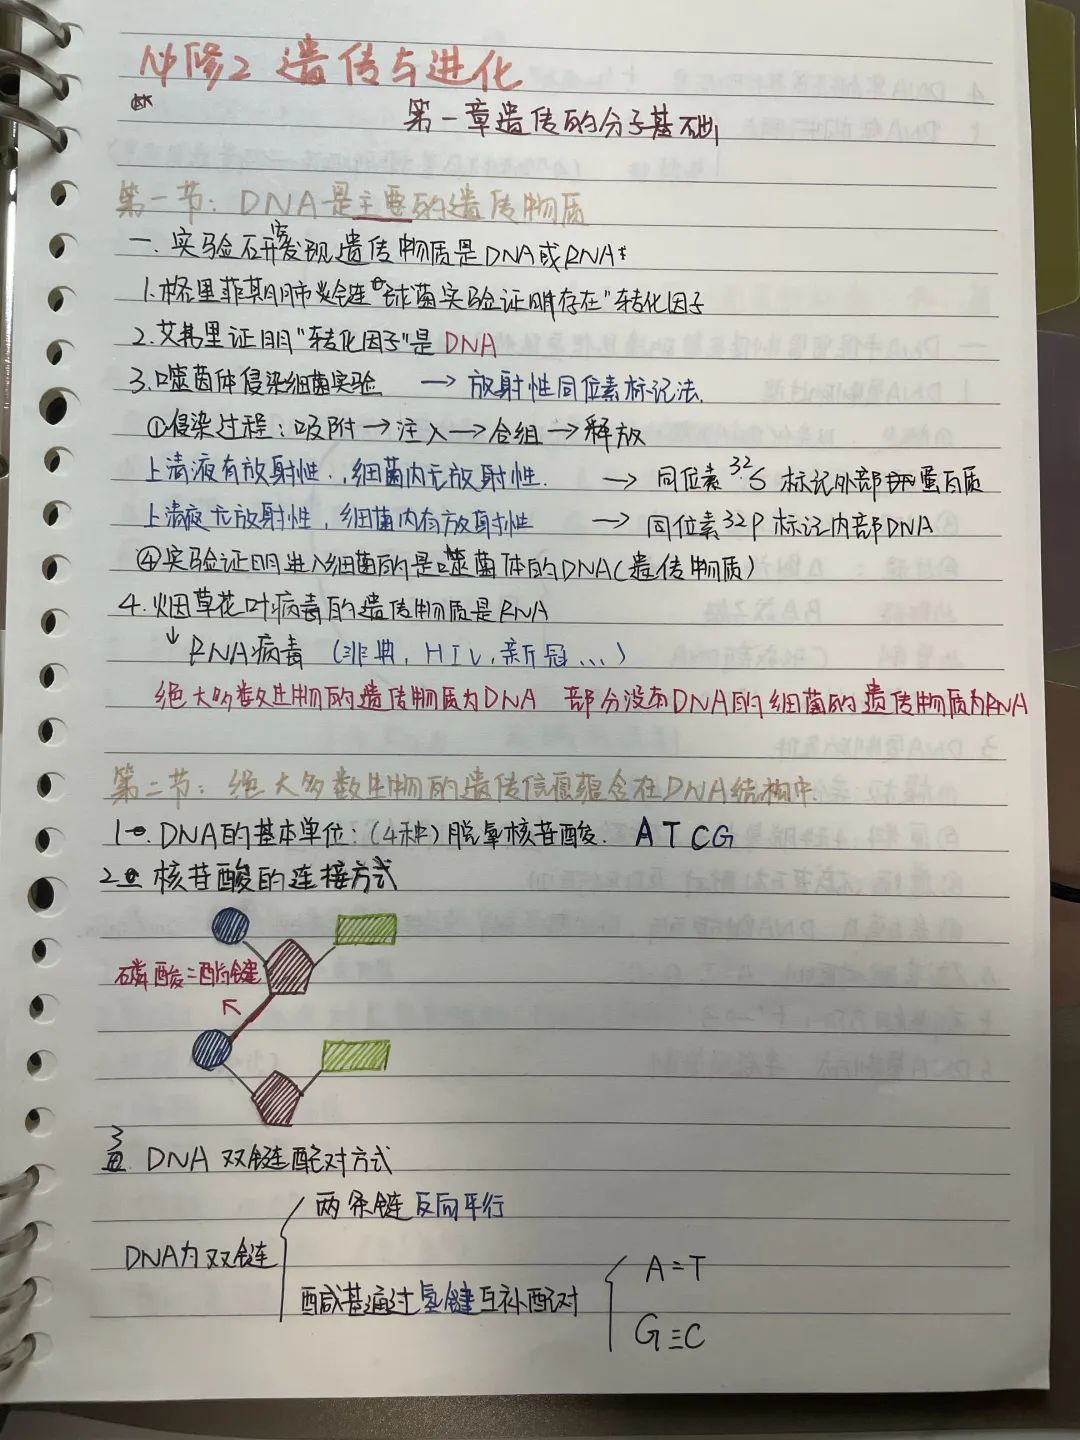 必修2 遗传与进化
第一章遗传的分子基础
第一节：DNA是主要的遗传物质
一. 实验研究发现遗传物质是DNA或RNA
1.格里菲斯肺炎链球菌实验证明存在"转化因子
2.艾弗里证明"转化因子"是DNA
3.噬菌体侵染细菌实验 → 放射性同位素标记法.
①侵染过程：吸附→注入→合组→释放
上清液有放射性.,细菌内无放射性. → 同位素³²S 标记外部蛋白质
上清液无放射性，细菌内有放射性 → 同位素32P标记内部DNA
④实验证明进入细菌的是噬菌体的DNA(遗传物质)
4.烟草花叶病毒的遗传物质是RNA
↓ RNA病毒 (非典，HIV，新冠...)
绝大多数生物的遗传物质为DNA 部分没有DNA的细菌的遗传物质为RNA
第二节：绝大多数生物的遗传信息蕴含在DNA结构中.
1.DNA的基本单位：(4种)脱氧核苷酸. A T C G
2 核苷酸的连接方式
磷酸二酯键
3 DNA双链配对方式
两条链反向平行
DNA为双链
碱基通过氢键互补配对
A=T
G≡C